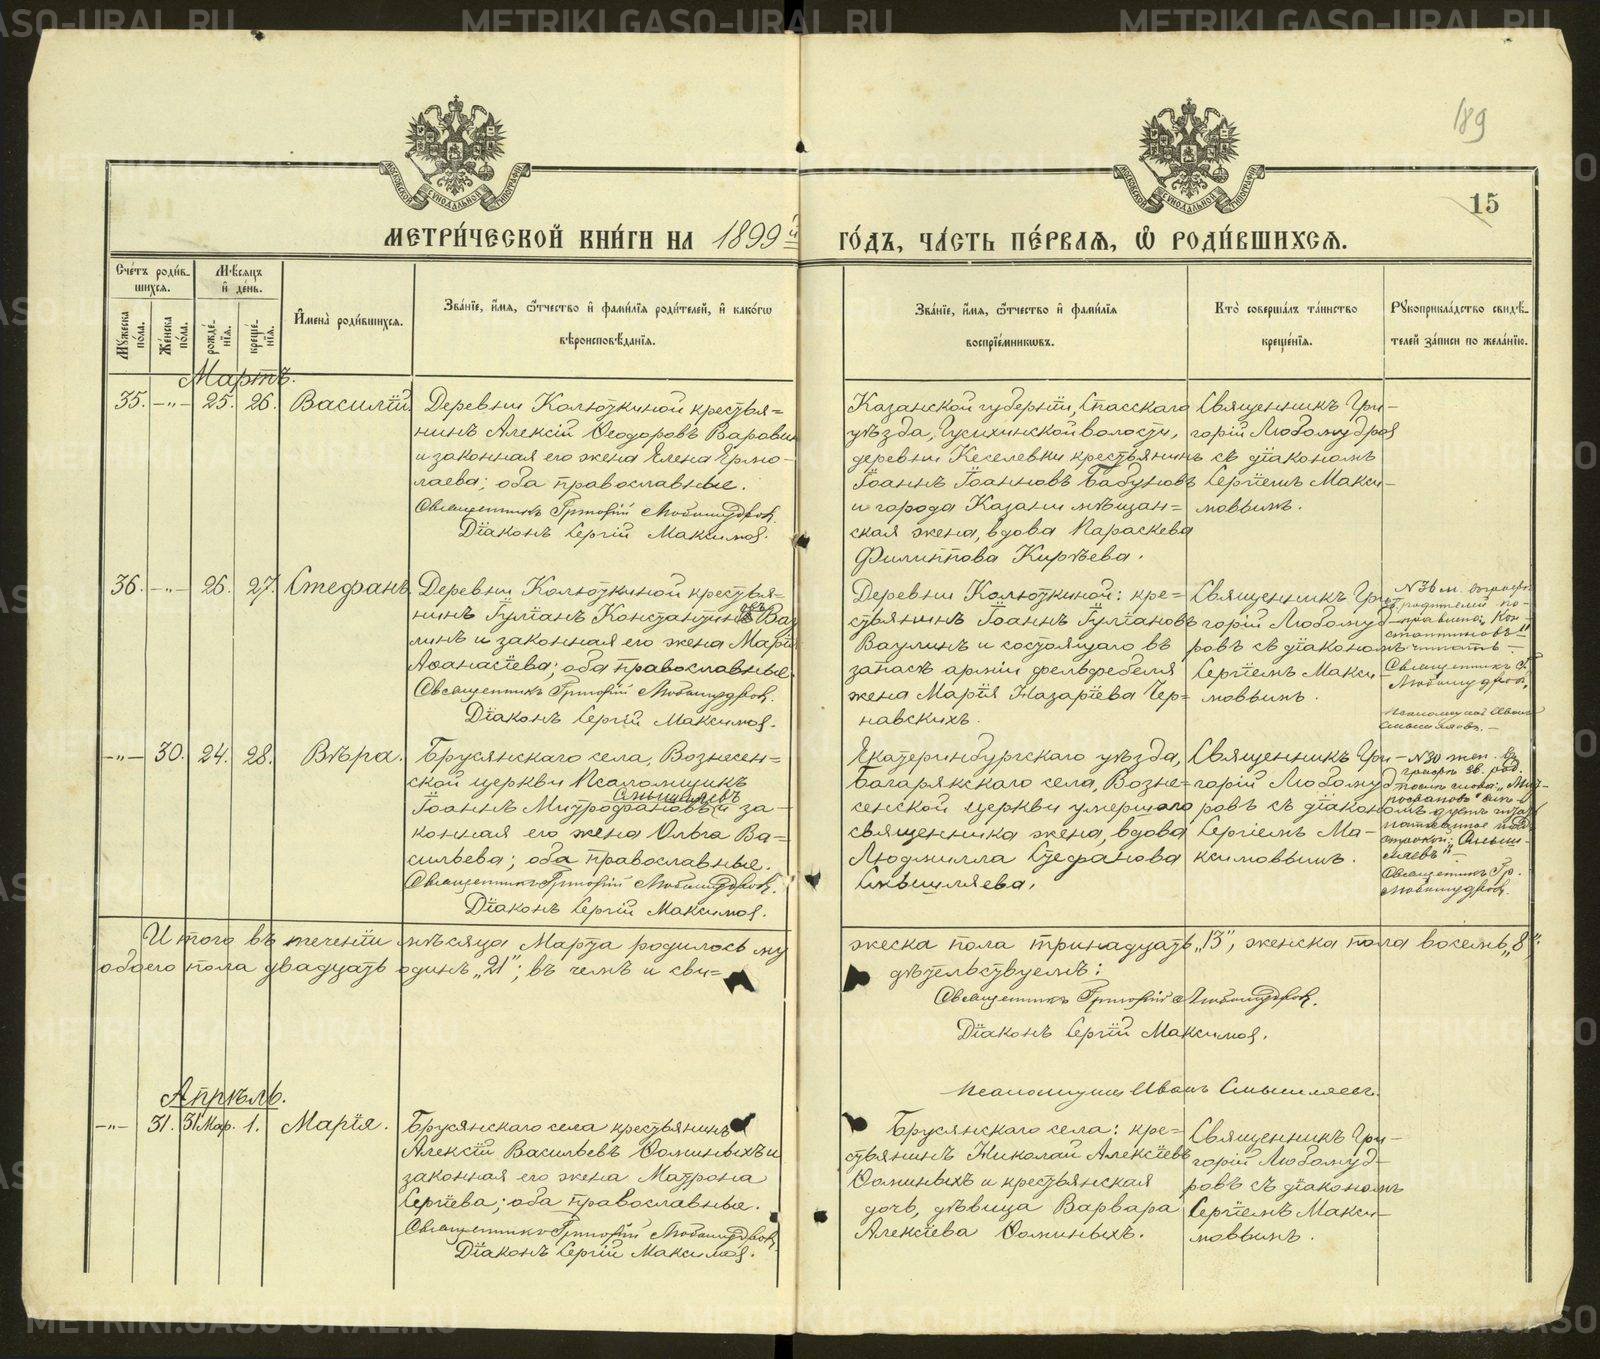 189
15
МЕТРИ́ЧЕСКОЙ КНИ́ГИ НА 1899й ГО́ДЪ, ЧА́СТЬ ПЕ́РВАЯ, Ѡ РОДИ́ВШИХСЯ.
Сче́тъ роди́в-
шихся.
Мѣ́сяцъ
и де́нь.
Мꙋ́жеска
по́ла.
Же́нска
по́ла.
рожде́-
нїя.
креще́-
нїя.
Имена̀ роди́вшихся.
Зва́нїе, и́мя, ѻ́тчество и фами́лїя роди́телей, и како́гѡ
вѣроисповѣ́данїя.
Зва́нїе, и́мя, ѻ́тчество и фами́лїя
воспрїе́мниковъ.
Кто̀ соверша́лъ та́инство
креще́нїя.
Рꙋкоприкла́дство свидѣ́-
телей за́писи по жела́нїю.
Мартъ.
35. —"— 25. 26. Василій.
Деревни Колюткиной крестья=
нинъ Алексій Ѳеодоровъ Варавин
и законная его жена Елена Ермо-
лаева; оба православные.
Священникъ Григорій Любомудровъ.
Діаконъ Сергій Максимов.
Казанской губерніи, Спасскаго
уѣзда, Гусихинской волости,
деревни Кеселевки крестьянинъ
Іоаннъ Іоанновъ Бабуновъ
и города Казани мѣщан=
ская жена, вдова Параскева
Филиппова Кирѣева.
Священникъ Гри-
горій Любомудров
съ діакономъ
Сергіемъ Макси-
мовымъ.
36. —"— 26. 27. Стефанъ.
Деревни Колюткиной крестья=
нинъ Іуліанъ Константиновъ Вау
линъ и законная его жена Марія
Аѳанасіева; оба православные.
Священникъ Григорій Любомудровъ.
Діаконъ Сергій Максимов.
Деревни Колюткиной: кре=
стьянинъ Іоаннъ Іуліановъ
Ваулинъ и состоящаго въ
запасѣ арміи фельдфебеля
жена Марія Назаріева Чер=
навскихъ.
Священникъ Гри-
горій Любомуд-
ровъ съ діакономъ
Сергіемъ Макси-
мовымъ.
№ 36 м. въ графѣ
родителей по-
правлено: Кон-
стантиновъ"
читать —
Священникъ Г.
Любомудров.
Псаломщикъ Иван
Смышляевъ. —
—"— 30. 24. 28. Вѣра.
Брусянскаго села, Вознесен=
ской церкви Псаломщикъ
Смышляевъ
Іоаннъ Митрофановъ и за-
конная его жена Ольга Ва=
сильева; оба православные.
Священникъ Григорій Любомудровъ.
Діаконъ Сергій Максимов.
Екатеринбургскаго уѣзда,
Багарякскаго села, Возне=
сенской церкви умершаго
священника жена, вдова
Людмилла Стефанова
Смышляева.
Священникъ Гри-
горій Любомуд-
ровъ съ діакономъ
Сергіемъ Ма-
ксимовымъ.
— № 30 жен. въ
графѣ зв. род.
послѣ слова: „Мит-
рофановъ"
строкой: Смыш-
ляевъ" —
Священникъ Гр.
Любомудров.
Итого въ теченіи мѣсяца Марта родилось му
жеска пола тринадцать „13", женска пола восемь „8";
обоего пола двадцать одинъ „21"; въ чемъ и сви=
дѣтельствуемъ:
Священникъ Григорій Любомудров.
Діаконъ Сергій Максимов.
Псаломщикъ Иванъ Смышляевъ.
Апрѣль.
—"— 31. 31 Мар. 1. Марія.
Брусянскаго села крестьянинъ
Алексій Васильевъ Ѳоминыхъ и
законная его жена Матрона
Сергіева; оба православные.
Священникъ Григорій Любомудров.
Діаконъ Сергій Максимов.
Брусянскаго села: кре=
стьянинъ Николай Алексіевъ
Ѳоминыхъ и крестьянская
дочь, дѣвица Варвара
Алексіева Ѳоминыхъ.
Священникъ Гри-
горій Любомуд-
ровъ съ діакономъ
Сергіемъ Макси-
мовымъ.
METRIKI.GASO-URAL.RU